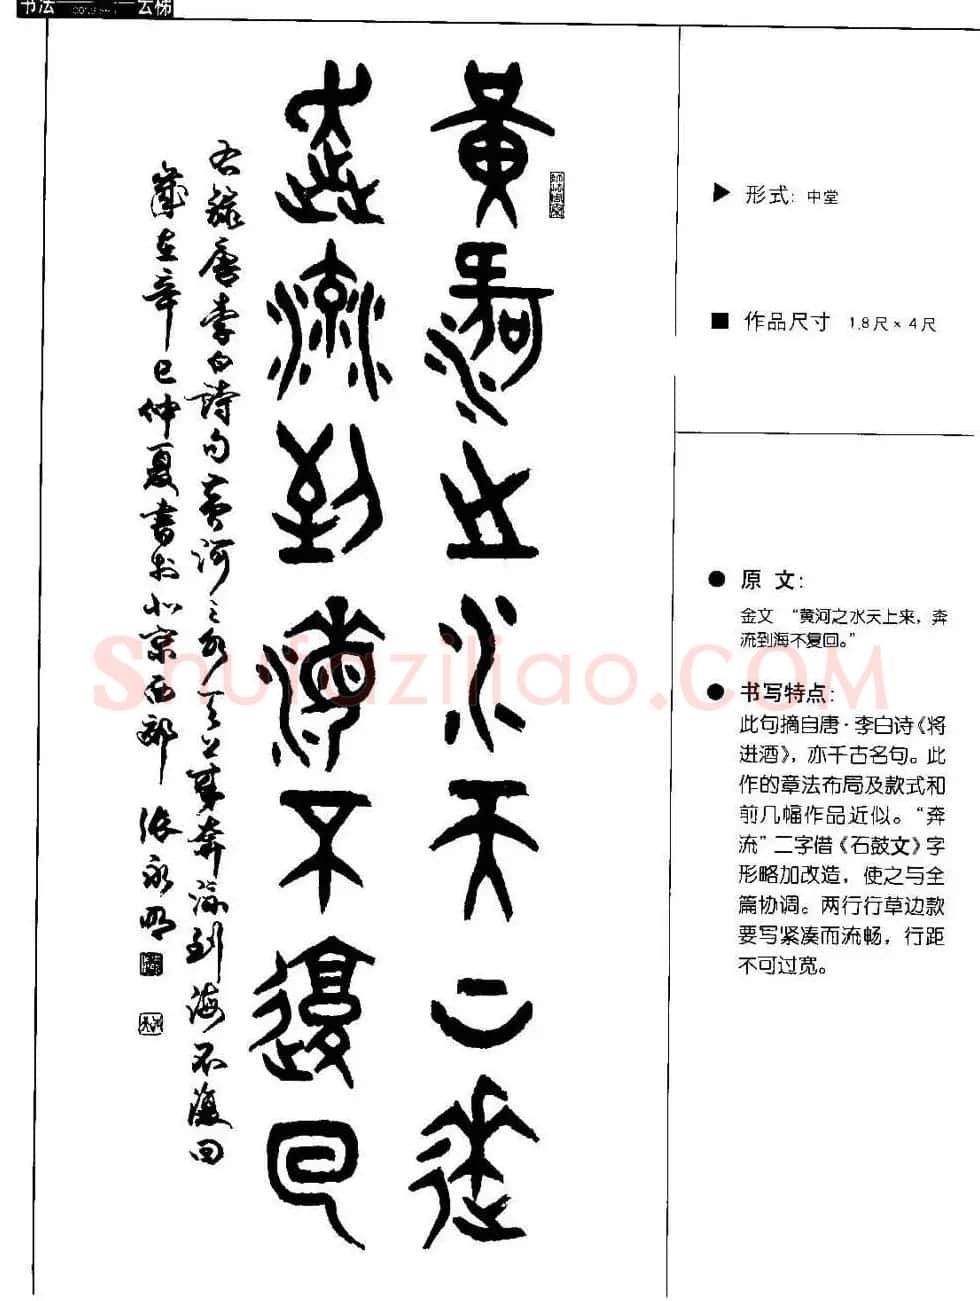 书法 云梯
黄河之水天上来
奔流到海不复回
右录唐李白诗句黄河之水天上来奔流到海不复回
岁在辛巳仲夏书于北京西郊 张永明
▶ 形式：中堂
■ 作品尺寸 1.8尺×4尺
● 原 文：
金文 “黄河之水天上来，奔
流到海不复回。”
● 书写特点：
此句摘自唐·李白诗《将
进酒》，亦千古名句。此
作的章法布局及款式和
前几幅作品近似。“奔
流”二字借《石鼓文》字
形略加改造，使之与全
篇协调。两行行草边款
要写紧凑而流畅，行距
不可过宽。
Shufaziliao.COM